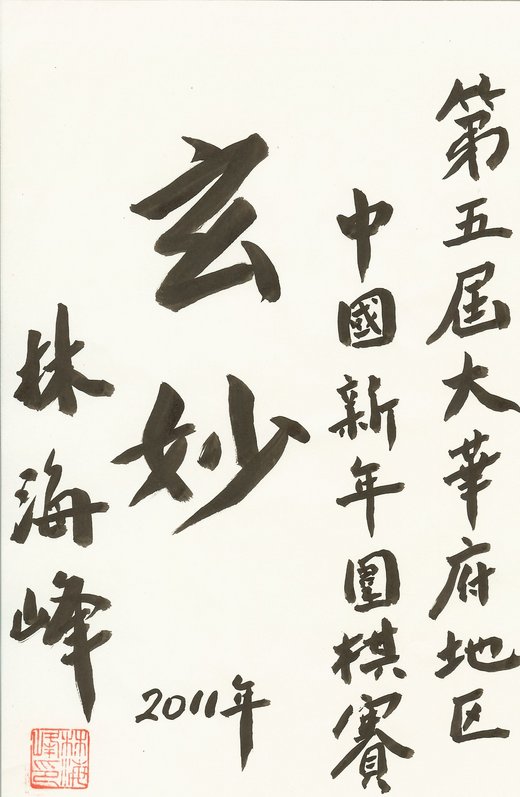 第五屆大華府地区
中國新年圍棋賽
玄妙
2011年
林海峰
林海峰印